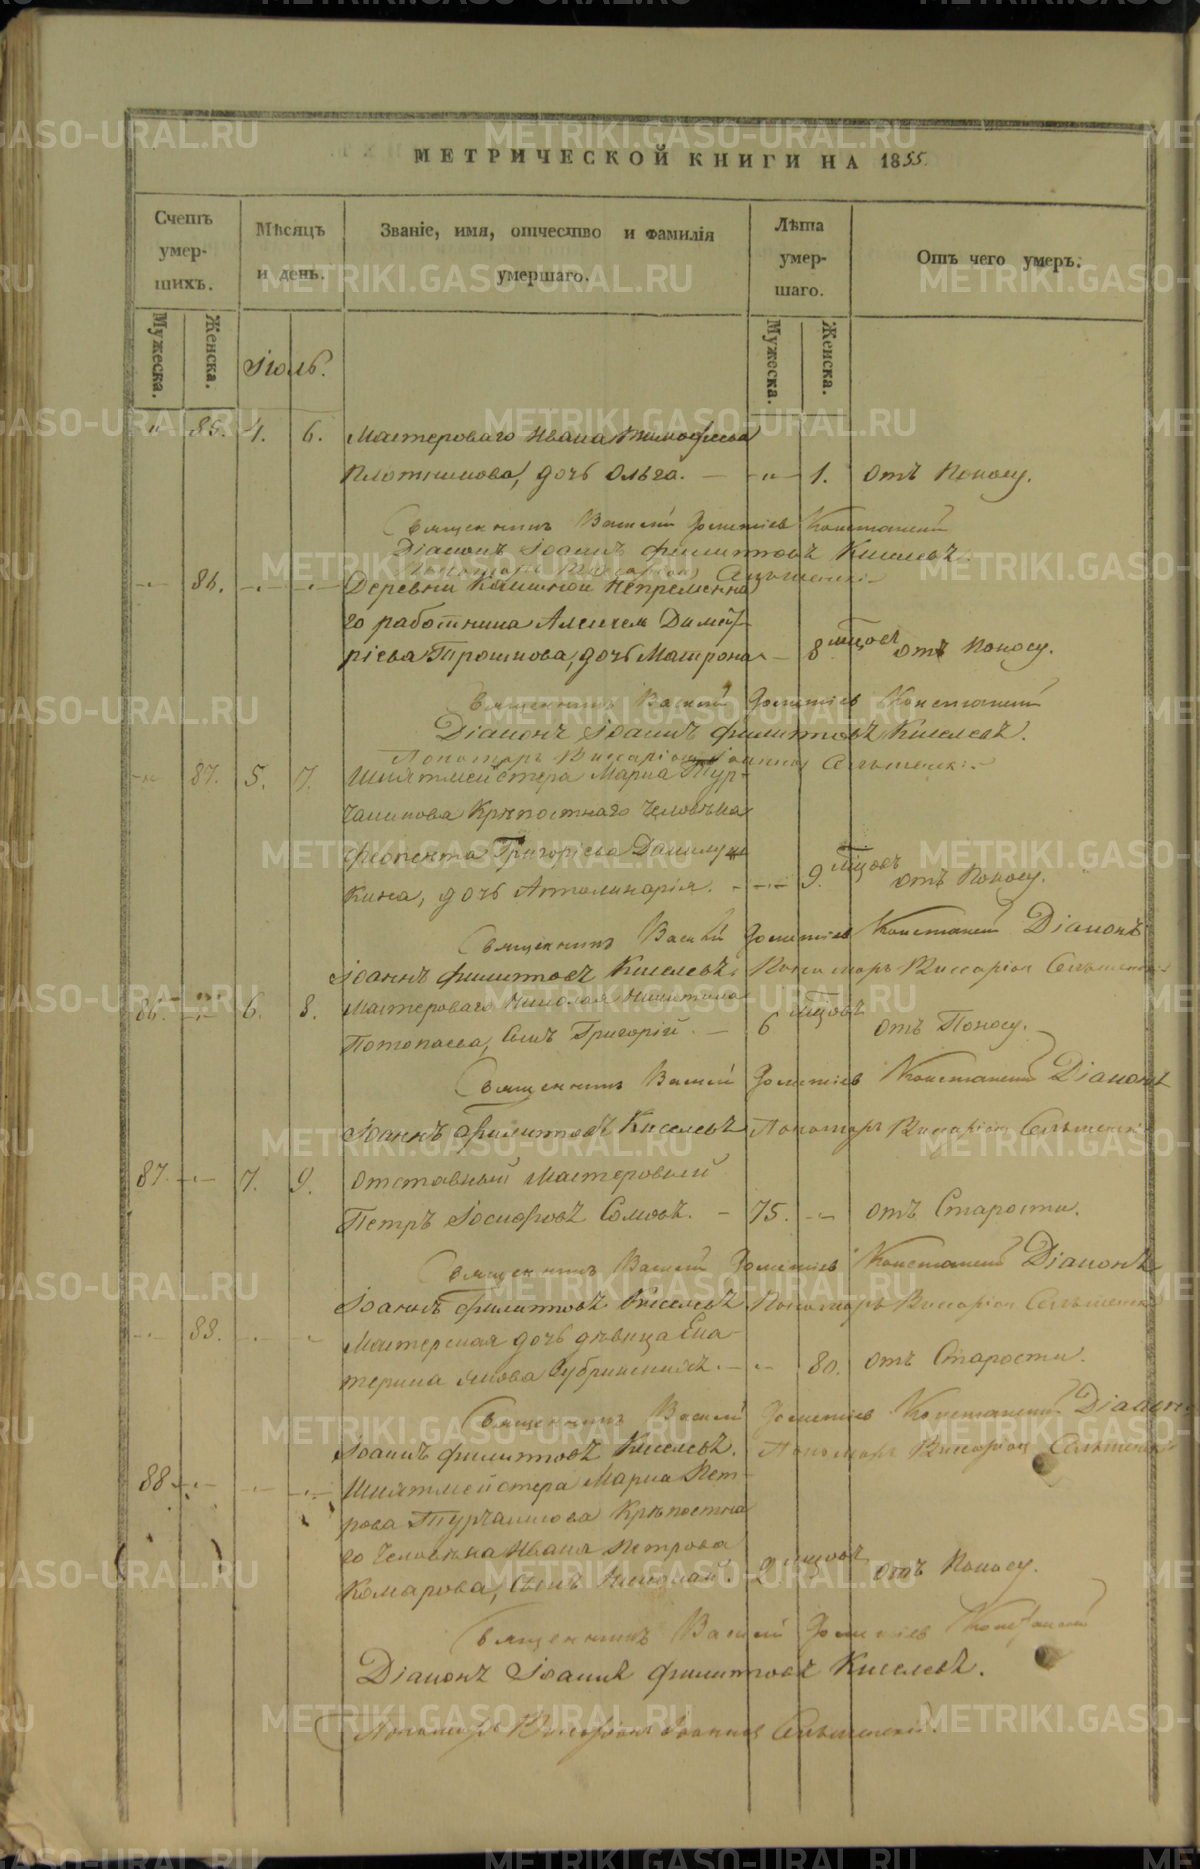 МЕТРИЧЕСКОЙ КНИГИ НА 1855.
Счетъ умершихъ.
Мѣсяцъ и день.
Званіе, имя, отчество и фамилія умершаго.
Лѣта умершаго.
Отъ чего умеръ.
Мужеска. Женска.
Іюль.
Мужеска. Женска.
" 85. 4. 6. Мастероваго Ивана Тимофеева
Плотникова, дочь Ольга. — " 1. отъ Поносу.
Священникъ Василій Константин
Діаконъ Іоаннъ Филиповъ Киселевъ.
Пономарь Виссаріон
86. Деревни Непременна
го работника Алексея Дмит
ріева Трошкова, дочь Матрона — 8 мцовъ отъ Поносу.
Священникъ Василій Константин
Діаконъ Іоаннъ Филиповъ Киселевъ.
Пономарь Виссаріон Іоаннов
87. 5. 7. Шихтмейстера Марка Тур-
чанинова Крѣпостнаго человѣка
Григоріева
кина, дочь Аполинарія. — 9. мцовъ отъ Поносу.
Священникъ Василій Константин Діаконъ
Іоаннъ Филиповъ Киселевъ. Пономарь Виссаріон
86. 6. 8. Мастероваго Николая Никитина
Потопаева, сынъ Григорій. — 6 мцовъ отъ Поносу.
Священникъ Василій Константин Діаконъ
Іоаннъ Филиповъ Киселевъ Пономарь Виссаріон
87. 7. 9. Отставный Мастеровый
Петръ Іосифовъ Сомовъ. — 75. отъ Старости.
Священникъ Василій Константин Діаконъ
Іоаннъ Филиповъ Киселевъ. Пономарь Виссаріон
88. Мастерская дочь дѣвица Ека-
терина Якова — 80. отъ Старости.
Священникъ Василій Константин Діаконъ
Іоаннъ Филиповъ Киселевъ. Пономарь Виссаріон
88 Шихтмейстера Марка Пет-
рова Турчанинова Крѣпостна
го человѣка Ивана Петрова
Комарова, сынъ Николай. 2 мцовъ отъ Поносу.
Священникъ Василій Константин
Діаконъ Іоаннъ Филиповъ Киселевъ.
Пономарь Виссаріон Іоаннов
METRIKI.GASO-URAL.RU